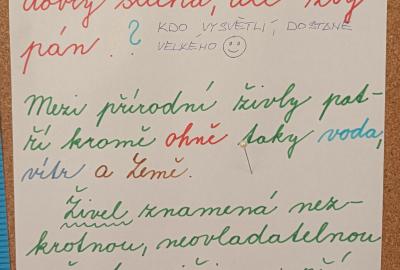 dobrý sluha, ale zlý
pán . . ? KDO VYSVĚTLÍ, DOSTANE
VELKÉHO
Mezi přírodní živly pat-
ří kromě ohně taky voda,
vítr a Země.
Živel znamená nez-
krotnou, neovladatelnou